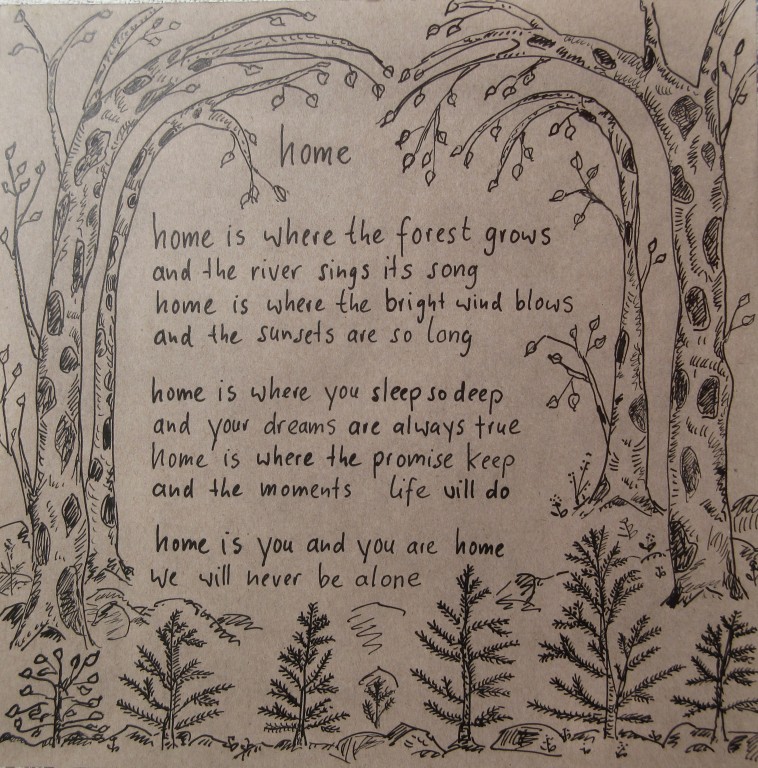 home
home is where the forest grows
and the river sings it's song
home is where the bright wind blows
and the sunsets are so long
home is where you sleep so deep
and your dreams are always true
home is where the promise keep
and the moments life will do
home is you and you are home
we will never be alone